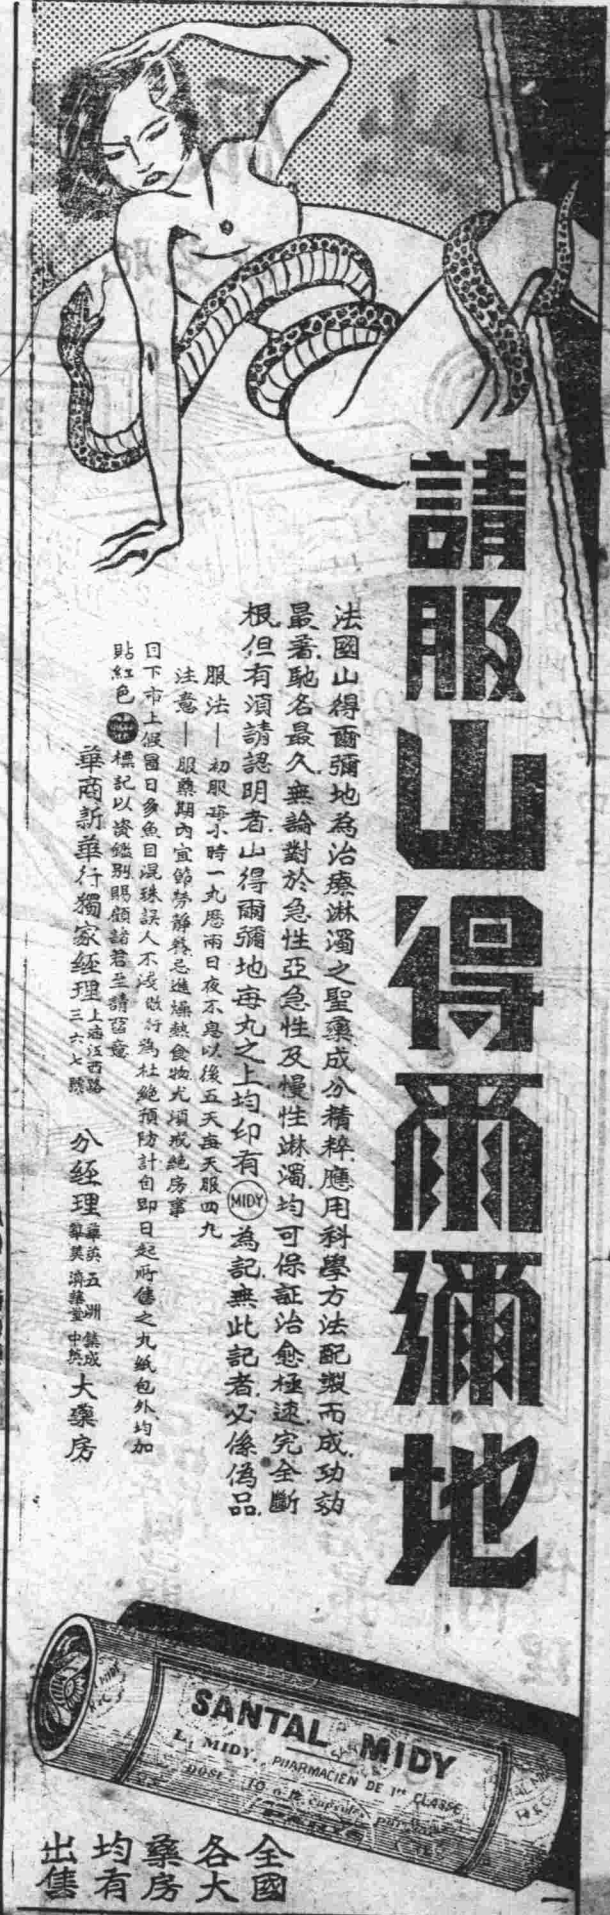 請服山得爾彌地
法國山得爾彌地為治療淋濁之聖藥成分精粹應用科學方法配製而成功効
最著馳名最久無論對於急性亞急性及慢性淋濁均可保証治愈極速完全斷
根但有須請認明者山得爾彌地每丸之上均印有MIDY為記無此記者必係偽品
服法—初服每小時一丸歷兩日夜不息以後五天每天服四九
注意—服藥期內宜節勞靜養忌進燥熱食物尤須戒絕房事
目下市上假冒日多魚目混珠誤人不淺敝行為杜絕預防計自即日起所售之丸紙包外均加
貼紅色標記以資鑑別賜顧諸君至請留意
華商新華行獨家經理上海江西路三六七號
分經理華英五洲集成華美濟華堂中英大藥房
SANTAL MIDY
L. MIDY, PHARMACIEN DE 1re CLASSE
DOSE: 10 à 12 capsules par
全國各大藥房均有出售